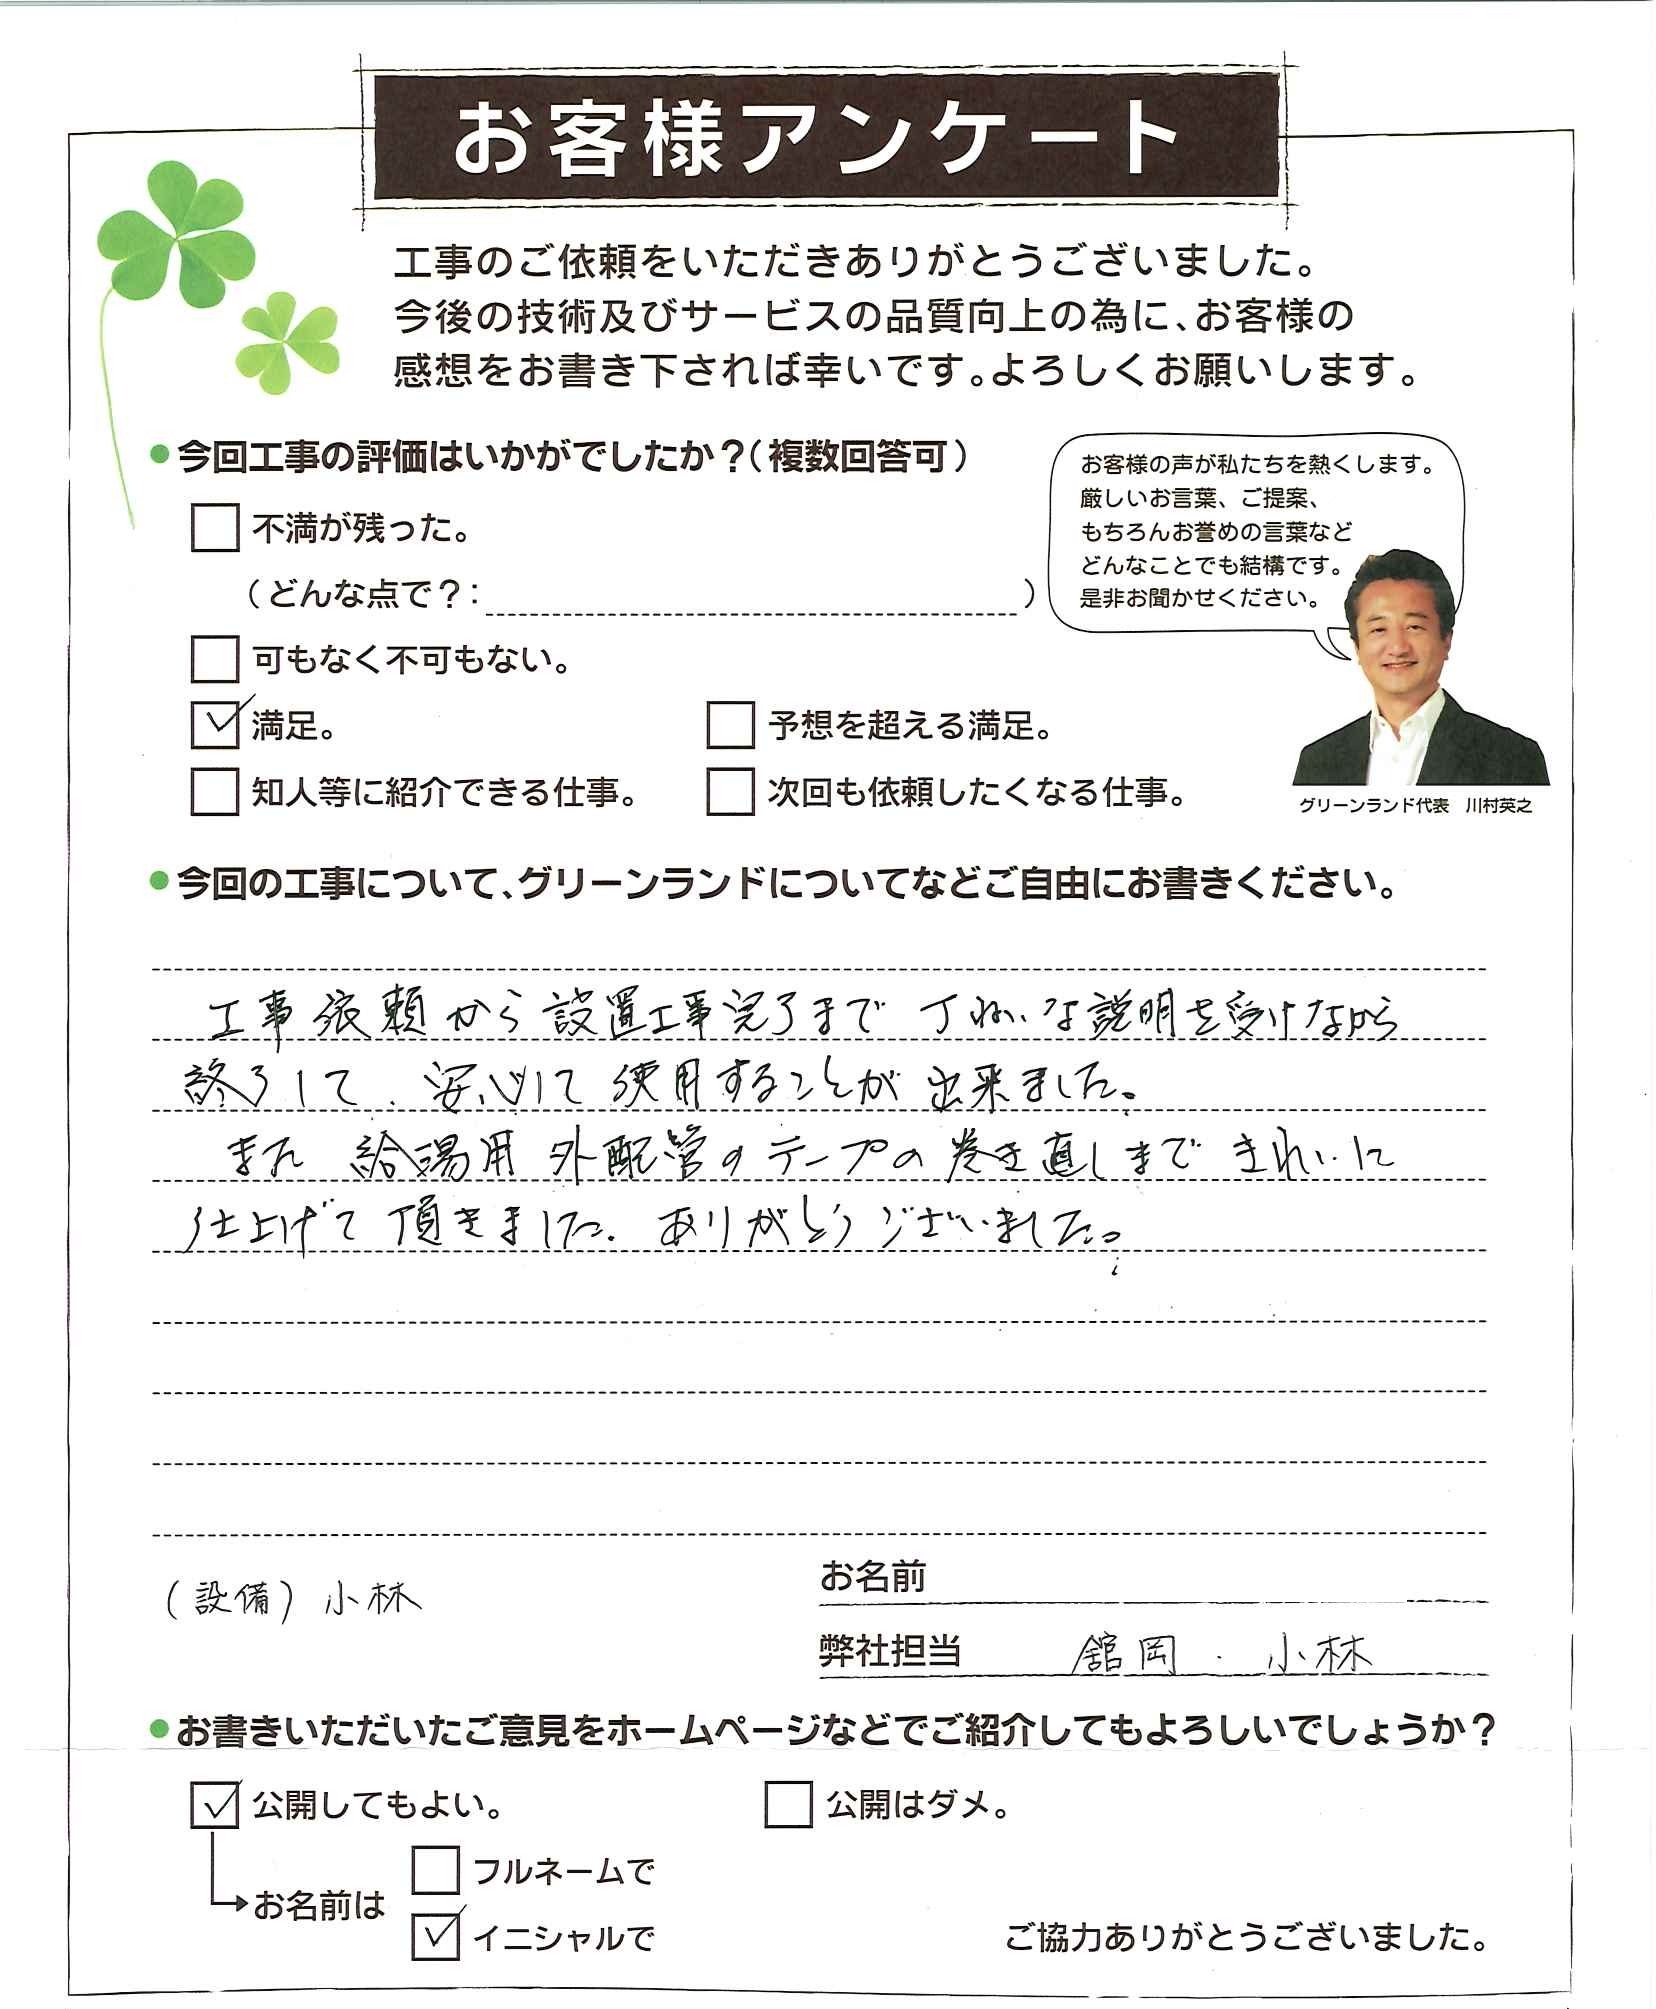 お客様アンケート
工事のご依頼をいただきありがとうございました。
今後の技術及びサービスの品質向上の為に、お客様の
感想をお書き下されば幸いです。よろしくお願いします。
●今回工事の評価はいかがでしたか？（複数回答可）
お客様の声が私たちを熱くします。
厳しいお言葉、ご提案、
もちろんお誉めの言葉など
どんなことでも結構です。
是非お聞かせください。
不満が残った。
（どんな点で？：　）
可もなく不可もない。
満足。　予想を超える満足。
知人等に紹介できる仕事。　次回も依頼したくなる仕事。
グリーンランド代表　川村英之
●今回の工事について、グリーンランドについてなどご自由にお書きください。
工事依頼から設置工事完了まで丁ねいな説明を受けながら
終了して、安心して使用することが出来ました。
また給湯用外配管のテープの巻き直しまできれいに
仕上げて頂きました。ありがとうございました。
お名前
（設備）小林
弊社担当　舘岡．小林
●お書きいただいたご意見をホームページなどでご紹介してもよろしいでしょうか？
公開してもよい。　公開はダメ。
フルネームで
お名前は
イニシャルで
ご協力ありがとうございました。